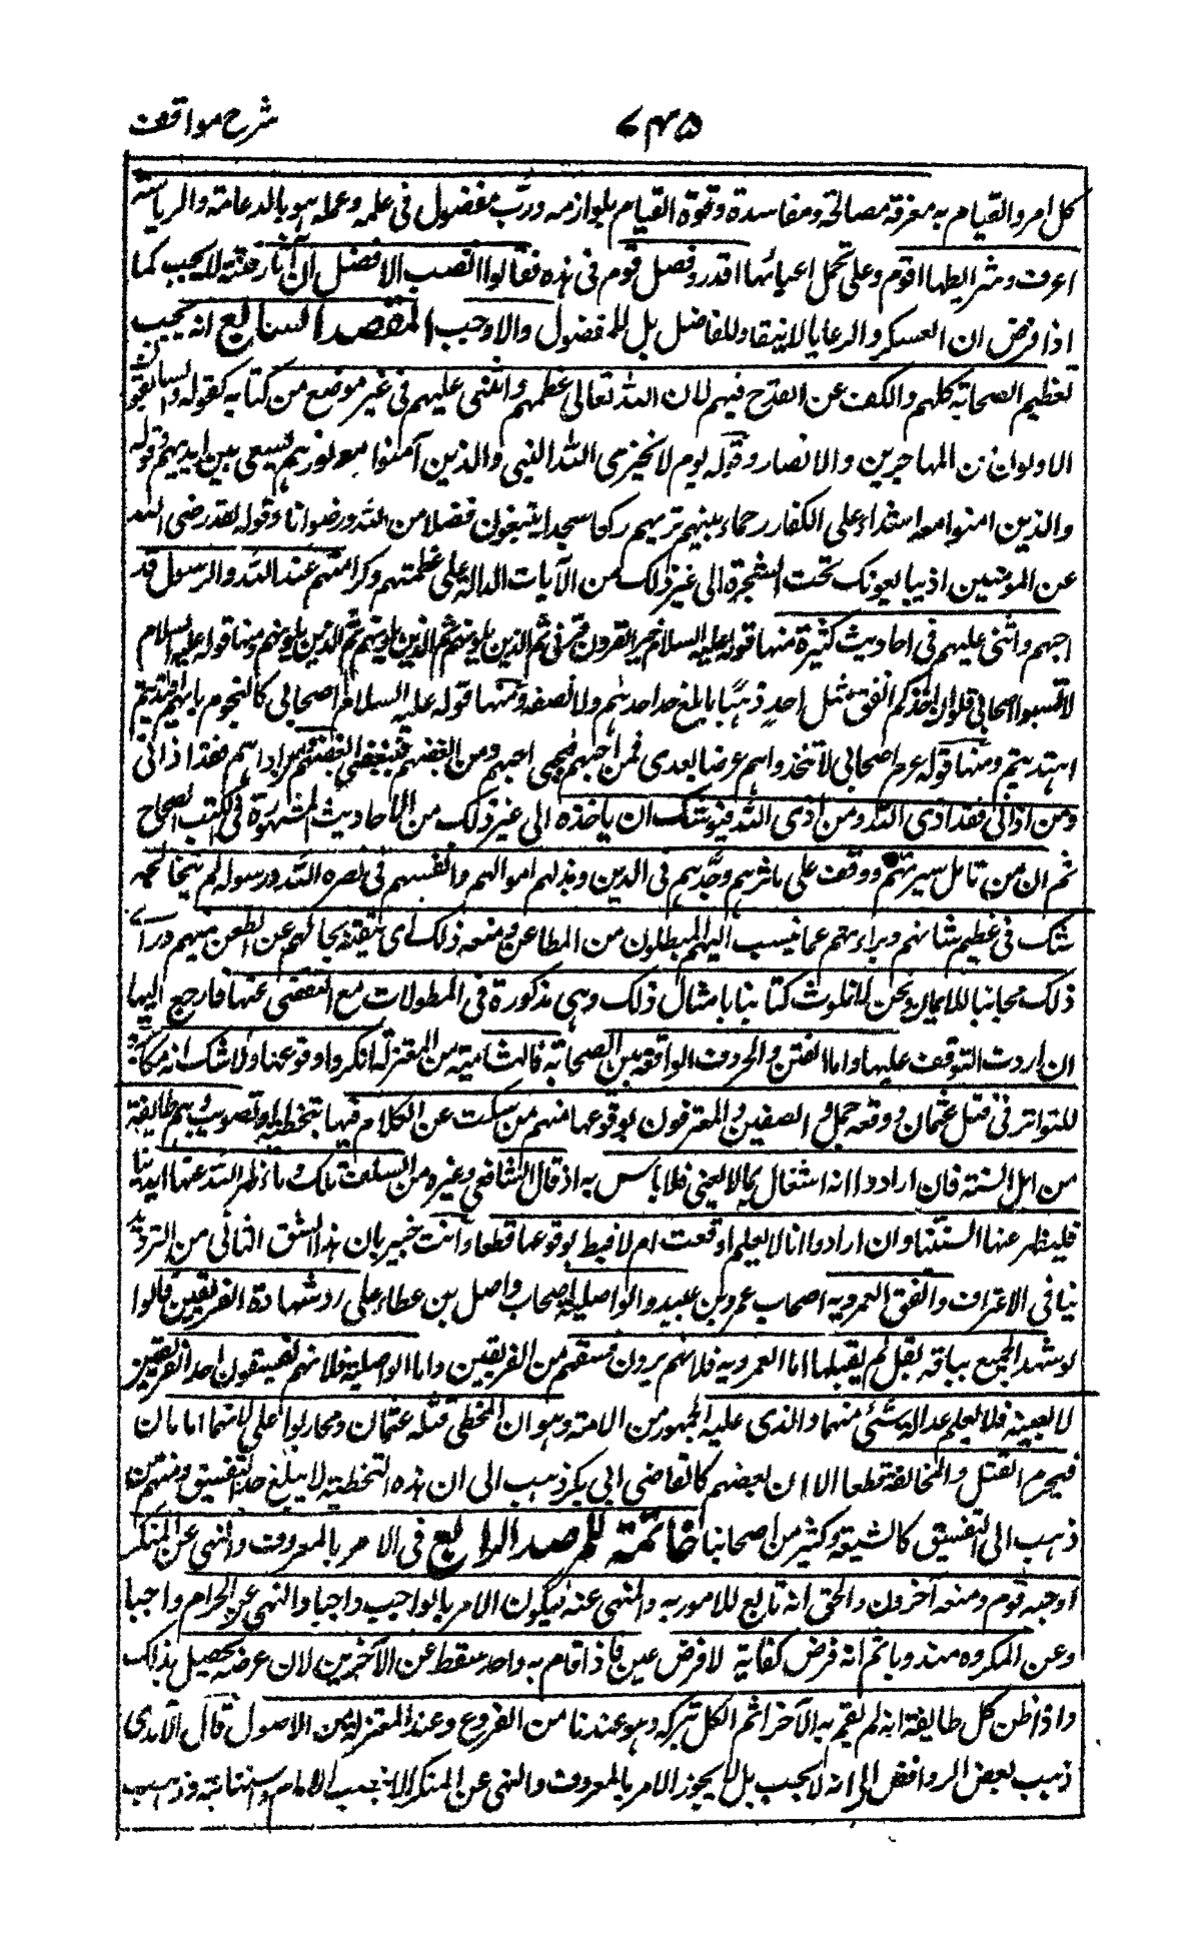 شرح مواقف ۷۴۵
كل امر والقيام به معرفة مصالحه ومفاسده وقوة القيام بلوازمه ورب مفضول فى علمه وعمله هو بالزعامة والرياسة
اعرف وبشرايطها اقوم وعلى تحمل اعبائها اقدر وفصل قوم فى هذه فقالوا نصب الافضل ان اثار فتنة لا يجب كما
اذا فرض ان العسكر والرعايا لا ينقاد للفاضل بل للمفضول والا وجب المقصد السابع انه يجب
تعظيم الصحابة كلهم والكف عن القدح فيهم لان الله تعالى عظمهم واثنى عليهم فى غير موضع من كتابه كقوله والسابقون
الاولون من المهاجرين والانصار وقوله يوم لا يخزى الله النبى والذين آمنوا معه نورهم يسعى بين ايديهم وقوله
والذين امنوا معه اشداء على الكفار رحماء بينهم تريهم ركعا سجدا يبتغون فضلا من الله ورضوانا وقوله لقد رضى الله
عن المومنين اذ يبايعونك تحت الشجرة الى غير ذلك من الآيات الدالة على عظمتهم وكرامتهم عند الله والرسول قد
احبهم واثنى عليهم فى احاديث كثيرة منها قوله عليه السلام خير القرون قرنى ثم الذين يلونهم ثم الذين يلونهم ثم الذين يلونهم ومنها قوله عليه السلام
لا تسبوا اصحابى فلو ان احدكم انفق مثل احد ذهبا ما بلغ مد احدهم ولا نصفه ومنها قوله عليه السلام اصحابى كالنجوم بايهم اقتديتم
اهتديتم ومنها قوله عم اصحابى لا تتخذوهم غرضا بعدى فمن احبهم فبحبى احبهم ومن ابغضهم فببغضى ابغضهم ومن اذاهم فقد اذانى
ومن اذانى فقد اذى الله ومن اذى الله فيوشك ان ياخذه الى غير ذلك من الاحاديث المشهورة فى الكتب الصحاح
ثم ان من تامل سيرتهم ووقف على ماثرهم وجدهم فى الدين وبذلهم اموالهم وانفسهم فى نصرة الله ورسوله لم يتخالجه
شك فى عظيم شانهم وبراءتهم عما ينسب اليهم المبطلون من المطاعن ومنعه ذلك اى تيقنه بحالهم عن الطعن فيهم وراى
ذلك مجانبا للايمان ونحن لا نلوث كتابنا بامثال ذلك وهى مذكورة فى المطولات مع التفصى عنها فارجع اليها
ان اردت التوقف عليها واما الفتن والحروب الواقعة بين الصحابة فالهشامية من المعتزلة انكروا وقوعها ولا شك انه مكابرة
للتواتر فى قتل عثمان ووقعة جمل والصفين والمعترفون بوقوعها منهم من سكت عن الكلام فيها بتخطية او تصويب وهم طايفة
من اهل السنة فان ارادوا انه اشتغال بما لا يعنى فلا باس به اذ قال الشافعى وغيره من السلف تلك دماء طهر الله عنها ايدينا
فليطهر عنها السنتنا وان ارادوا انا لا نعلم اوقعت ام لا فبطل لوقوعها قطعا وانت خبير بان هذا الشق الثانى من الترديد
ينافى الاعتراف واتفق العمروية اصحاب عمرو بن عبيد والواصلية اصحاب واصل بن عطاء على رد شهادة الفريقين قالوا
لو شهد الجميع بباقة بقل لم يقبلها اما العمروية فلانهم يرون فسقهم من الفريقين واما الواصلية فلانهم يفسقون احد الفريقين
لا بعينه فلا يعلم عدالة شئ منهما والذى عليه الجمهور من الامة وهو ان المخطئ قتلة عثمان ومحاربوا على لانهما امامان
فيحرم القتل والمخالفة قطعا الا ان بعضهم كالقاضى ابى بكر ذهب الى ان هذه التخطية لا يبلغ حد التفسيق ومنهم من
ذهب الى التفسيق كالشيعة وكثير من اصحابنا خاتمة للمرصد الرابع فى الامر بالمعروف والنهى عن المنكر
اوجبه قوم ومنعه آخرون والحق انه تابع للمامور به والمنهى عنه فيكون الامر بالواجب واجبا والنهى عن الحرام واجبا
وعن المكروه مندوبا ثم انه فرض كفاية لا فرض عين فاذا قام به واحد سقط عن الآخرين لان غرضه يحصل بذلك
واذا ظن كل طايفة انه لم يقم به الآخر اثم الكل بتركه وهو عندنا من الفروع وعند المعتزلة من الاصول قال الآمدى
ذهب بعض الروافض الى انه لا يجب بل لا يجوز الامر بالمعروف والنهى عن المنكر الا بنصب الامام واستنابته وذهب